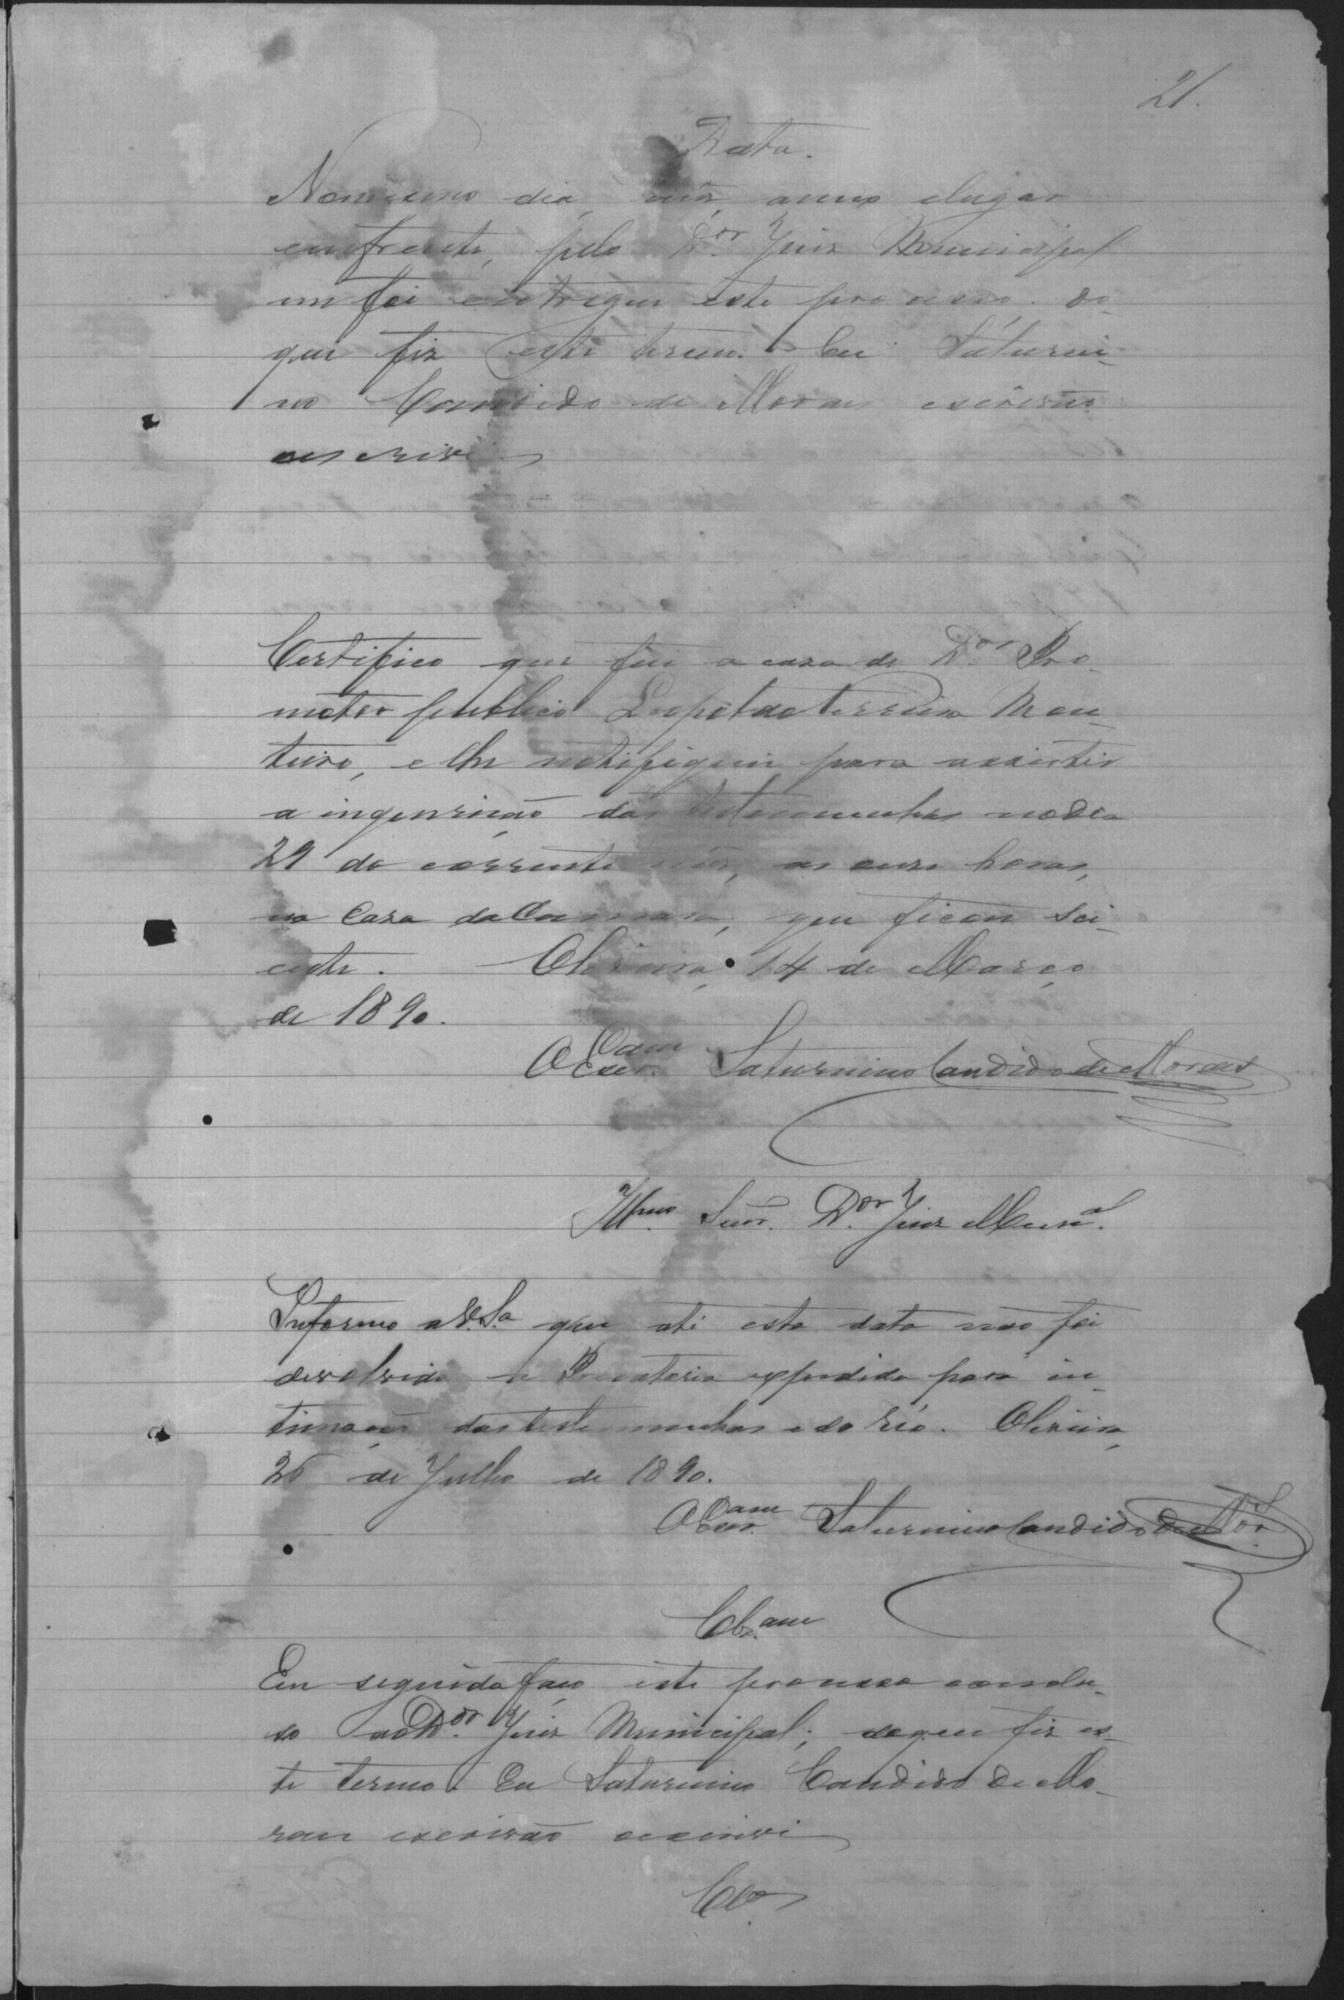 21.
Data.
No mesmo dia, mês, anno e lugar
emfrente, pelo Dor. Juiz Municipal
me foi entregue este processo, do
que fiz este termo. Eu Saturni-
no Candido de Moraes escrivão
escrevi
Certifico que fui a casa do Dor. Pro-
motor publico Leopoldo Ferreira Mon-
teiro, e lhe notifiquei para assistir
a inquirição das testemunhas no dia
29 do corrente mês, as onze horas,
na Casa da Camara, que ficou sci-
ente. Oliveira, 14 de Março
de 1890.
O Escr. Saturnino Candido de Moraes
Illmo. Senr. Dor. Juiz Munal.
Informo a V. Sa que até esta data não foi
devolvida a Precatoria expedida para in-
timação das testemunhas e do réo. Oliveira,
26 de Julho de 1890.
O Escr. Saturnino Candido de Mor.
Clsam
Em seguida faço este processo conclu-
so ao Dor. Juiz Municipal; do que fiz es-
te termo. Eu Saturnino Candido de Mo-
raes escrivão escrevi